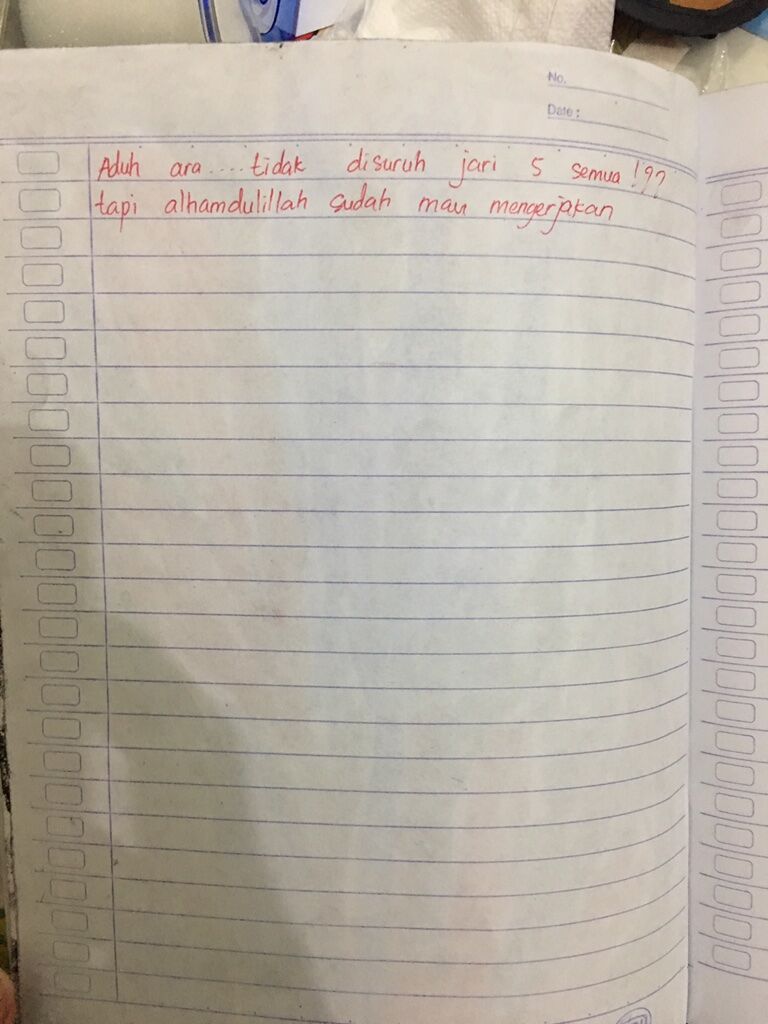 No.
Date :
Aduh ara .... tidak disuruh jari 5 semua !??
tapi alhamdulillah sudah mau mengerjakan